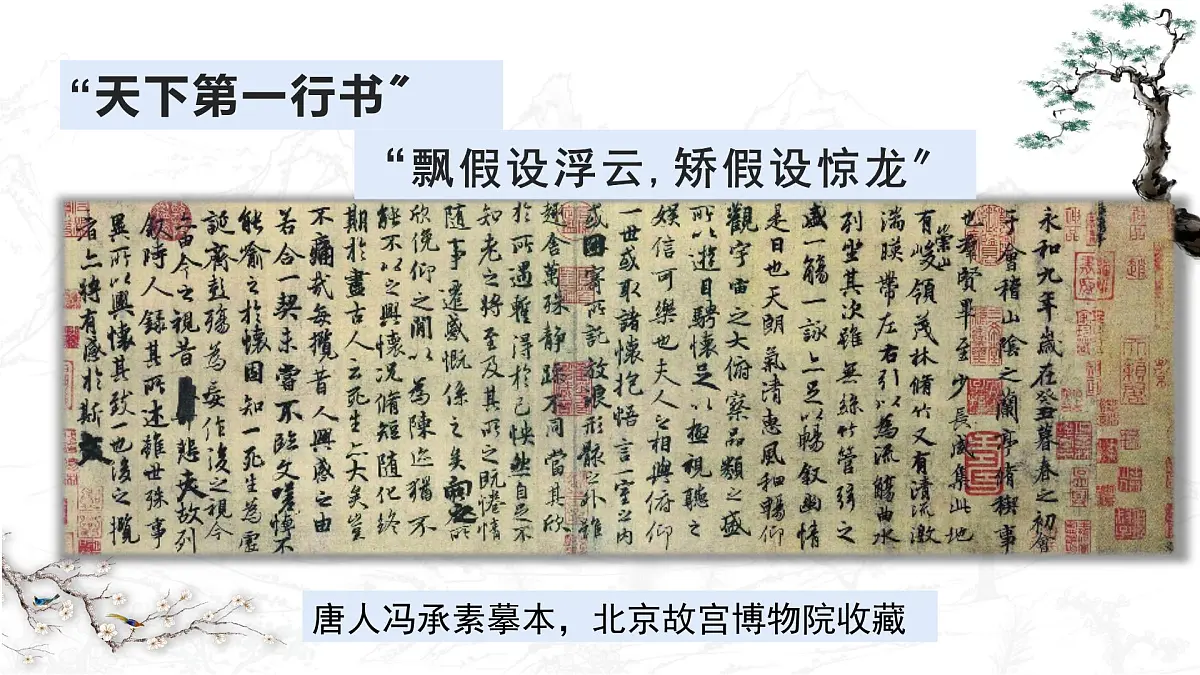 “天下第一行书〞
“飘假设浮云,矫假设惊龙〞
永和九年歲在癸丑暮春之初會
于會稽山陰之蘭亭脩稧事
也群賢畢至少長咸集此地
有崇山峻領茂林脩竹又有清流激
湍暎帶左右引以為流觴曲水
列坐其次雖無絲竹管弦之
盛一觴一詠亦足以暢叙幽情
是日也天朗氣清惠風和暢仰
觀宇宙之大俯察品類之盛
所以遊目騁懷足以極視聽之
娛信可樂也夫人之相與俯仰
一世或取諸懷抱悟言一室之內
或因寄所託放浪形骸之外雖
趣舍萬殊静躁不同當其欣
於所遇暫得於己怏然自足不
知老之將至及其所之既惓情
隨事遷感慨係之矣向之所
欣俛仰之閒以為陳迹猶不
能不以之興懷況脩短隨化終
期於盡古人云死生亦大矣豈
不痛哉每攬昔人興感之由
若合一契未嘗不臨文嗟悼不
能喻之於懷固知一死生為虛
誕齊彭殤為妄作後之視今
亦由今之視昔悲夫故列
叙時人錄其所述雖世殊事
異所以興懷其致一也後之攬
者亦將有感於斯文
唐人冯承素摹本，北京故宫博物院收藏